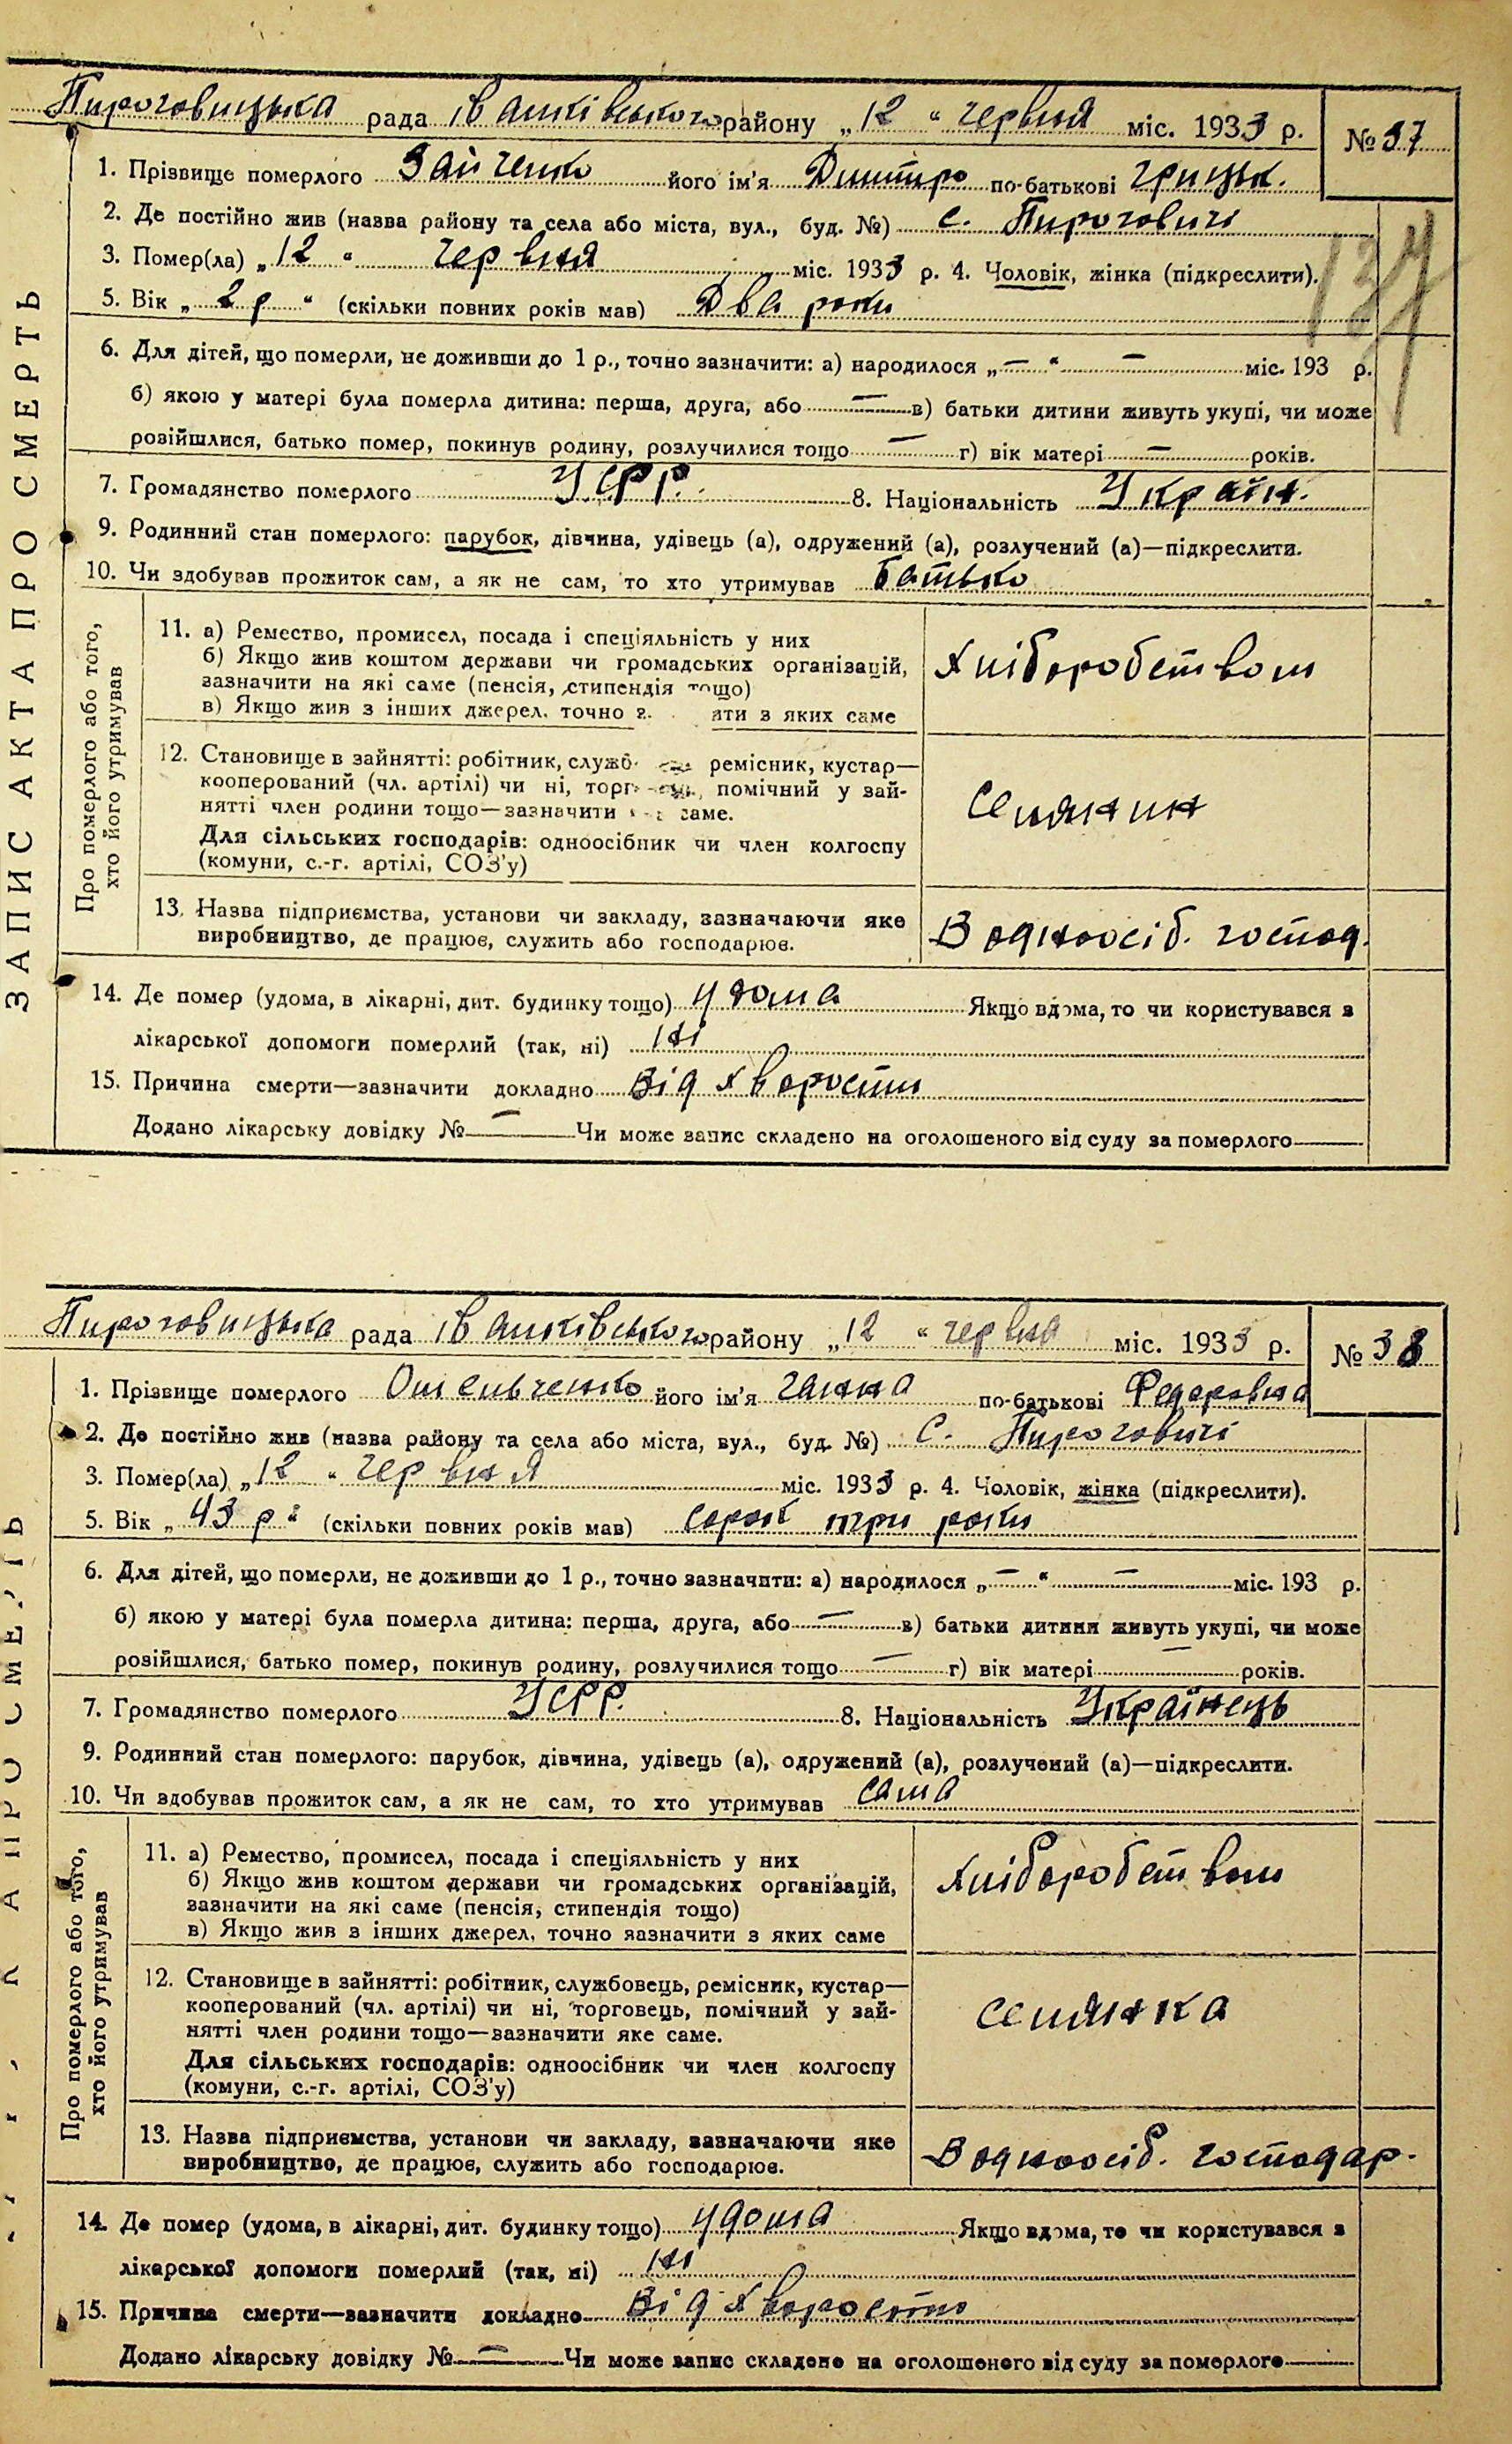 ЗАПИС АКТА ПРО СМЕРТЬ
Пироговицька рада Іванківського району „12 “ червня міс. 1933 р. № 37
1. Прізвище померлого Зайченко його ім'я Дмитро по-батькові Грицьк.
2. Де постійно жив (назва району та села або міста, вул., буд. №) с. Пироговичі
3. Помер(ла) „12 “ червня міс. 1933 р. 4. Чоловік, жінка (підкреслити).
5. Вік „ 2 р “ (скільки повних років мав) Два роки
137
6. Для дітей, що померли, не доживши до 1 р., точно зазначити: а) народилося „—“ — міс. 193 р.
б) якою у матері була померла дитина: перша, друга, або — в) батьки дитини живуть укупі, чи може
розійшлися, батько помер, покинув родину, розлучилися тощо — г) вік матері — років.
7. Громадянство померлого УСРР. 8. Національність Україн.
9. Родинний стан померлого: парубок, дівчина, удівець (а), одружений (а), розлучений (а)—підкреслити.
10. Чи здобував прожиток сам, а як не сам, то хто утримував батько
Про померлого або того,
хто його утримував
11. а) Ремество, промисел, посада і спеціяльність у них
б) Якщо жив коштом держави чи громадських організацій,
зазначити на які саме (пенсія, стипендія тощо)
в) Якщо жив з інших джерел, точно з ати з яких саме
Хліборобством
12. Становище в зайнятті: робітник, служб ремісник, кустар—
кооперований (чл. артілі) чи ні, торг помічний у зай-
нятті член родини тощо—зазначити саме.
Для сільських господарів: одноосібник чи член колгоспу
(комуни, с.-г. артілі, СОЗ'у)
селянин
13. Назва підприємства, установи чи закладу, зазначаючи яке
виробництво, де працює, служить або господарює.
В одноосіб. господ.
14. Де помер (удома, в лікарні, дит. будинку тощо) удома Якщо вдома, то чи користувався з
лікарської допомоги померлий (так, ні) ні
15. Причина смерти—зазначити докладно Від хворости
Додано лікарську довідку № — Чи може запис складено на оголошеного від суду за померлого —
Пироговицька рада Іванківського району „12 “ червня міс. 1933 р. № 38
1. Прізвище померлого Омельченко його ім'я Ганна по-батькові Федоровна
2. Де постійно жив (назва району та села або міста, вул., буд. №) С. Пироговичі
3. Помер(ла) „12 “ червня міс. 1933 р. 4. Чоловік, жінка (підкреслити).
5. Вік „ 43 р “ (скільки повних років мав) сорок три роки
6. Для дітей, що померли, не доживши до 1 р., точно зазначити: а) народилося „—“ — міс. 193 р.
б) якою у матері була померла дитина: перша, друга, або — в) батьки дитини живуть укупі, чи може
розійшлися, батько помер, покинув родину, розлучилися тощо — г) вік матері — років.
7. Громадянство померлого УСРР. 8. Національність Українець
9. Родинний стан померлого: парубок, дівчина, удівець (а), одружений (а), розлучений (а)—підкреслити.
10. Чи здобував прожиток сам, а як не сам, то хто утримував сама
Про померлого або того,
хто його утримував
11. а) Ремество, промисел, посада і спеціяльність у них
б) Якщо жив коштом держави чи громадських організацій,
зазначити на які саме (пенсія, стипендія тощо)
в) Якщо жив з інших джерел, точно зазначити з яких саме
Хліборобством
12. Становище в зайнятті: робітник, службовець, ремісник, кустар—
кооперований (чл. артілі) чи ні, торговець, помічний у зай-
нятті член родини тощо—зазначити яке саме.
Для сільських господарів: одноосібник чи член колгоспу
(комуни, с.-г. артілі, СОЗ'у)
селянка
13. Назва підприємства, установи чи закладу, зазначаючи яке
виробництво, де працює, служить або господарює.
В одноосіб. господар.
14. Де помер (удома, в лікарні, дит. будинку тощо) удома Якщо вдома, то чи користувався з
лікарської допомоги померлий (так, ні) ні
15. Причина смерти—зазначити докладно Від хворости
Додано лікарську довідку № — Чи може запис складено на оголошеного від суду за померлого —